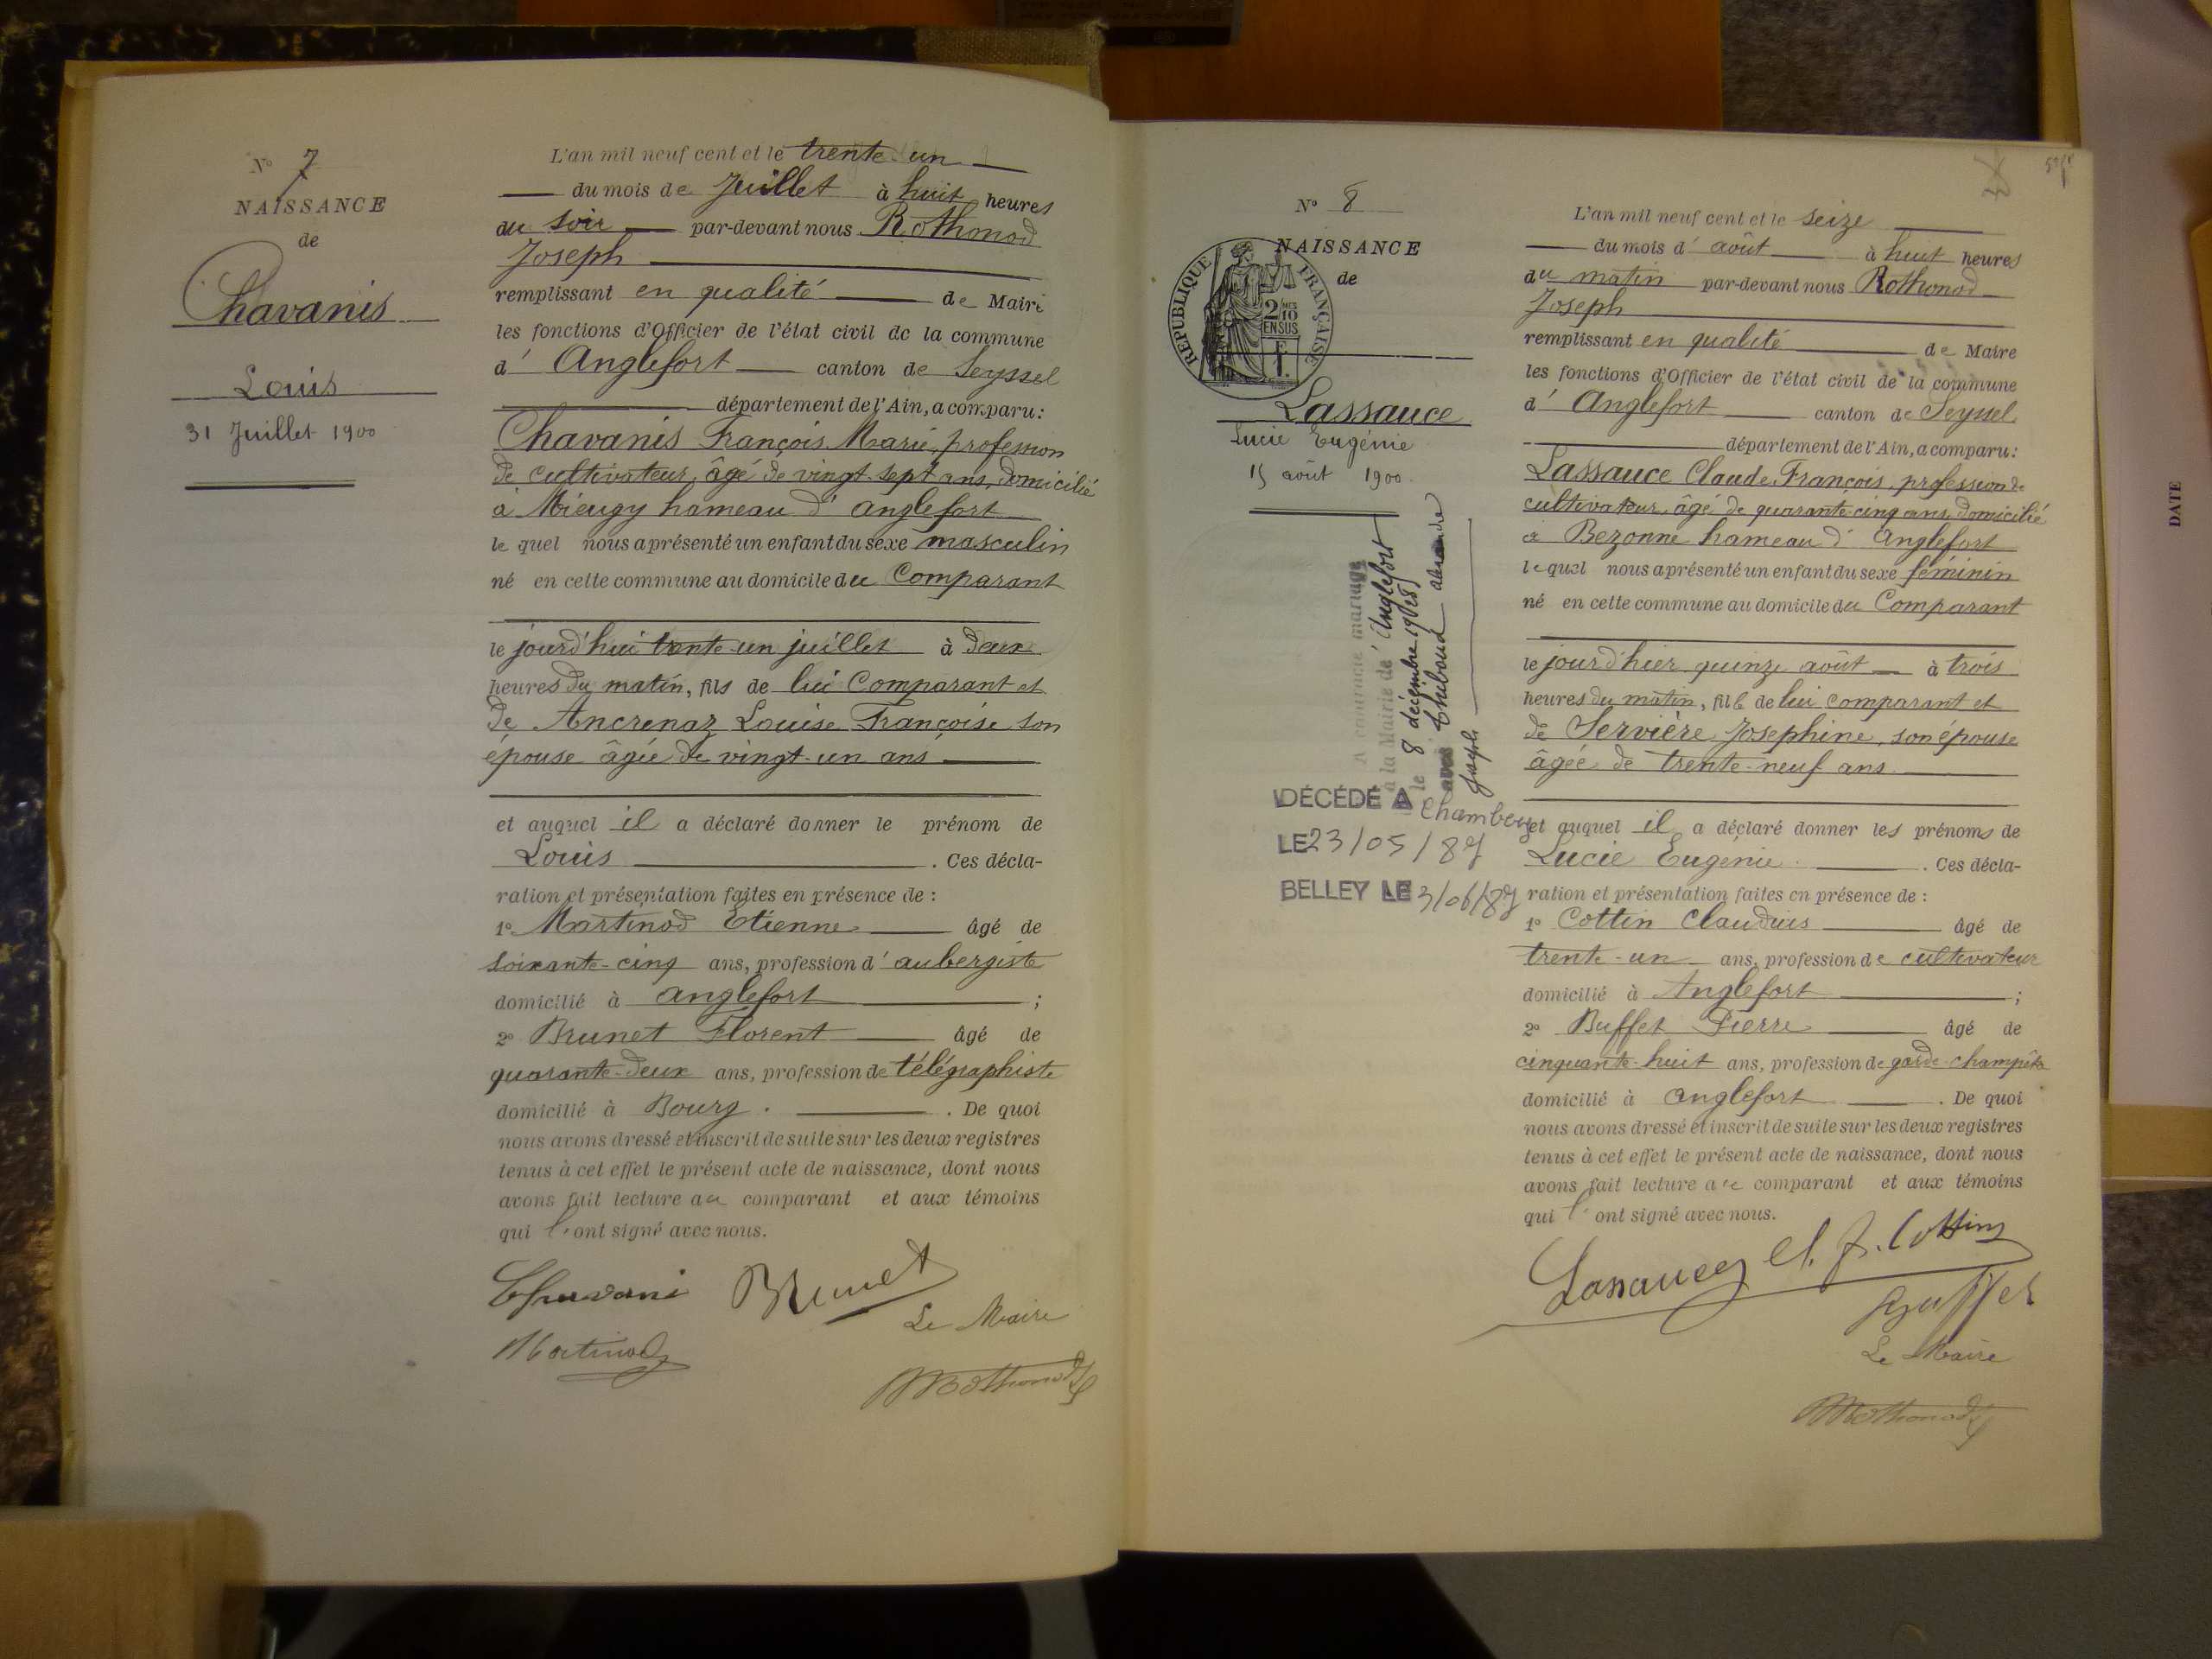 N° 7
NAISSANCE
de
Chavanis
Louis
31 Juillet 1900
L'an mil neuf cent et le trente-un
du mois de Juillet à huit heures
du soir par-devant nous Rothonod
Joseph
remplissant en qualité de Maire
les fonctions d'Officier de l'état civil de la commune
d' Anglefort canton de Seyssel
département de l'Ain, a comparu:
Chavanis François Marie, profession
de cultivateur, âgé de vingt-sept ans, domicilié
à Mieugy hameau d' anglefort
le quel nous a présenté un enfant du sexe masculin
né en cette commune au domicile du Comparant
le jourd'hui trente-un juillet à deux
heures du matin, fils de lui Comparant et
de Ancrenaz Louise Françoise son
épouse âgée de vingt-un ans
et auquel il a déclaré donner le prénom de
Louis . Ces décla-
ration et présentation faites en présence de :
1° Martinod Etienne âgé de
soixante-cinq ans, profession d' aubergiste
domicilié à anglefort ;
2° Brunet Florent âgé de
quarante-deux ans, profession de télégraphiste
domicilié à Bourg . De quoi
nous avons dressé et inscrit de suite sur les deux registres
tenus à cet effet le présent acte de naissance, dont nous
avons fait lecture au comparant et aux témoins
qui l'ont signé avec nous.
Chavani Brunet
Le Maire
Martinod
Rothonod
N° 8
NAISSANCE
de
REPUBLIQUE FRANÇAISE
2/10
EN SUS
Lassauce
Lucie Eugénie
15 août 1900
A contracté mariage
à la Mairie de Anglefort
le 8 décembre 1928
avec Thiboud
Joseph
DÉCÉDÉ A Chambery
LE 23/05/87
BELLEY LE 3/06/87
L'an mil neuf cent et le seize
du mois d' août à huit heures
du matin par-devant nous Rothonod
Joseph
remplissant en qualité de Maire
les fonctions d'Officier de l'état civil de la commune
d' Anglefort canton de Seyssel
département de l'Ain, a comparu:
Lassauce Claude François, profession de
cultivateur, âgé de quarante-cinq ans, domicilié
à Bezonne hameau d' anglefort
le quel nous a présenté un enfant du sexe féminin
né en cette commune au domicile du Comparant
le jourd'hier quinze août à trois
heures du matin, fille de lui comparant et
de Servière Josephine, son épouse
âgée de trente-neuf ans
et auquel il a déclaré donner les prénoms de
Lucie Eugénie . Ces décla-
ration et présentation faites en présence de :
1° Cottin Claudius âgé de
trente-un ans, profession de cultivateur
domicilié à Anglefort ;
2° Buffet Pierre âgé de
cinquante-huit ans, profession de garde-champêtre
domicilié à anglefort . De quoi
nous avons dressé et inscrit de suite sur les deux registres
tenus à cet effet le présent acte de naissance, dont nous
avons fait lecture au comparant et aux témoins
qui l'ont signé avec nous.
Lassauce Cl. F. Cottin
Buffet
Le Maire
Rothonod
DATE